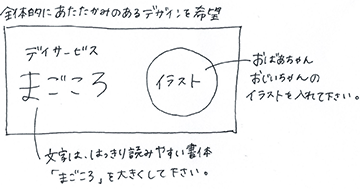 全体的にあたたかみのあるデザインを希望
デイサービス
まごころ
イラスト
おばあちゃん
おじいちゃんの
イラストを入れて下さい。
文字は、はっきり読みやすい書体
「まごころ」を大きくして下さい。